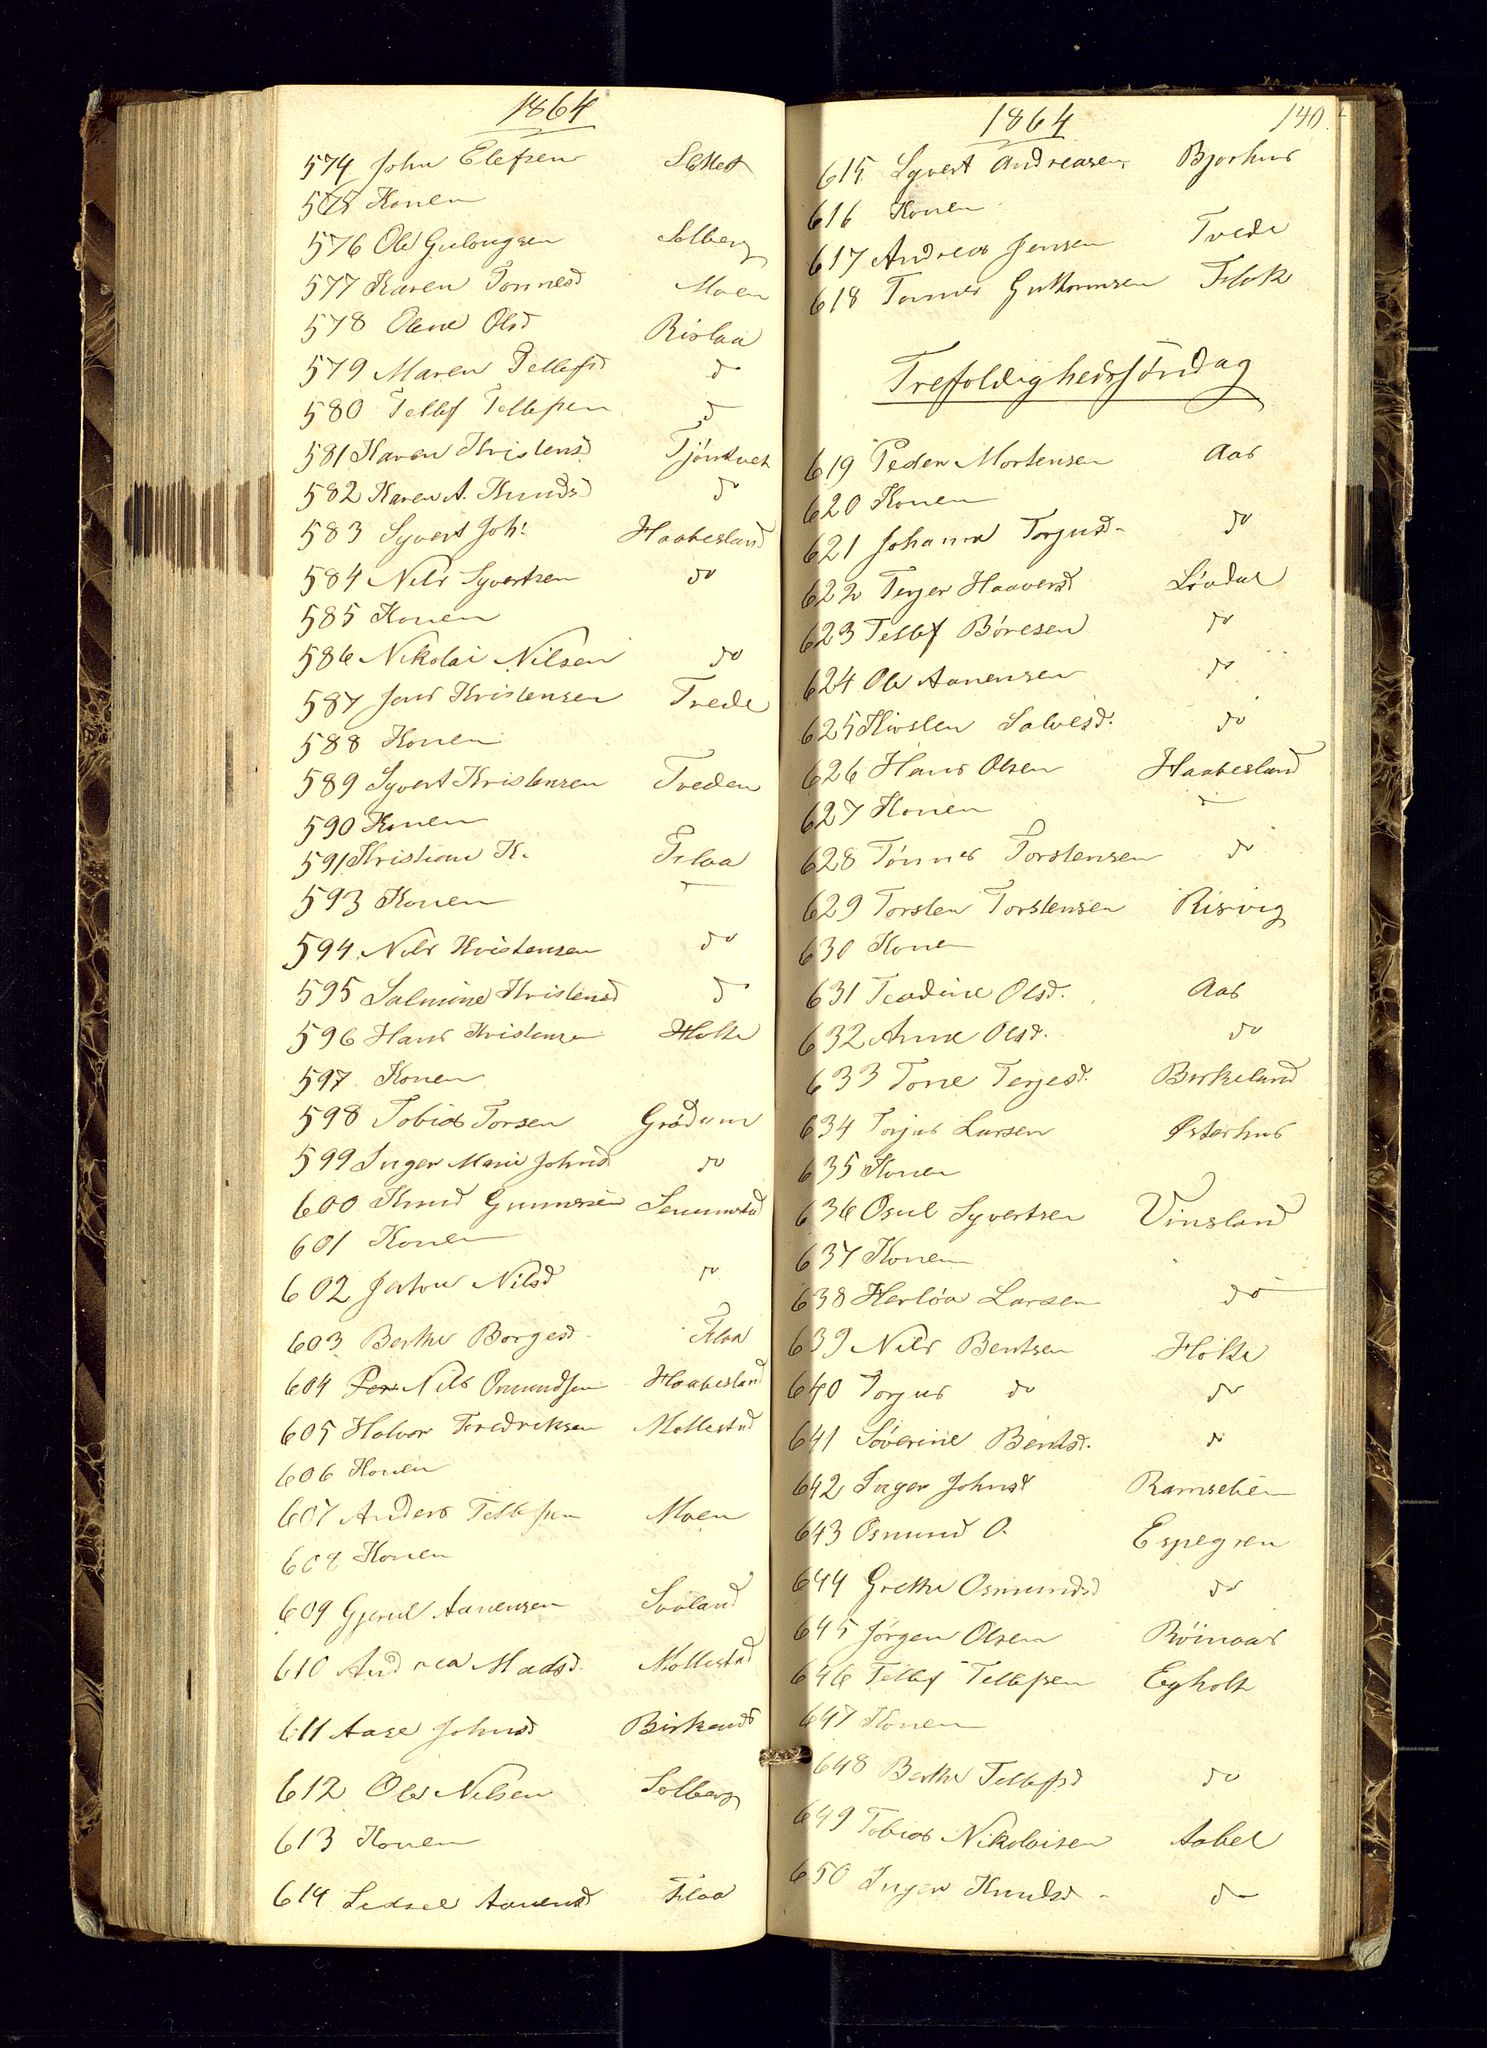 1864
574 John Elefsen
575 Konen
576 Ole Gulougsen Solberg
577 Karen Tonnesd Moen
578 Olene Olsd Rislaa
579 Maren Tellefsd do
580 Tellef Tellefsen do
581 Karen Kristensd Tjøntvet
582 Karen A. Knudsd do
583 Syvert Joh: Haabesland
584 Nils Syvertsen do
585 Konen
586 Nikolai Nilsen do
587 Jens Kristensen Tvede
588 Konen
589 Syvert Kristensen Tveden
590 Konen
591 Kristian K. Flaa
593 Konen –
594 Nils Kristensen do
595 Salmine Kristensd do
596 Hans Kristensen Holte
597 Konen
598 Tobias Torsen Grødum
599 Inger Marie Johnsd do
600 Knud Gunnersen Senumstad
601 Konen
602 Nilsd do
603 Berthe Borgesd Flaa
604 Nils Osmundsen Haabesland
605 Halvor Fredriksen Mollestad
606 Konen
607 Anders Tellefsen Moen
608 Konen
609 Gjerul Aanensen Svaland
610 Andrea Madsd. Mollestad
611 Aase Johnsd Birkenes
612 Ole Nilsen Solberg
613 Konen
614 Sidsel Aanensd Flaa
1864 140
615 Syvert Andreasen Bjorhus
616 Konen
617 Andreas Jensen Tvede
618 Tonnes Guttormsen Flak
Trefoldighedssøndag
619 Peder Mortensen Aas
620 Konen
621 Johanne Torjusd do
622 Terjer Haaversd Løvdal
623 Tellef Børesen do
624 Ole Aanensen do
625 Kirsten Salvesd. do
626 Hans Olsen Haabesland
627 Konen –
628 Tønnes Torstensen do
629 Torsten Torstensen Risvig
630 Konen
631 Teodine Olsd. Aas
632 Anne Olsd. do
633 Tone Terjesd. Birkeland
634 Torjus Larsen Østerhus
635 Konen
636 Osul Syvertsen Vinsland
637 Konen
638 Herløv Larsen do
639 Nils Bentsen Holte
640 Torjus do do
641 Søverine Bentsd. do
642 Inger Johnsd Ramselien
643 Osmund O. Espegren
644 Grethe Osmundsd do
645 Jørgen Olsen Røinaas
646 Tellef Tellefsen Egholt
647 Konen
648 Berthe Tellefsd do
649 Tobias Nikolaisen Aabel
650 Inger Knudsd do